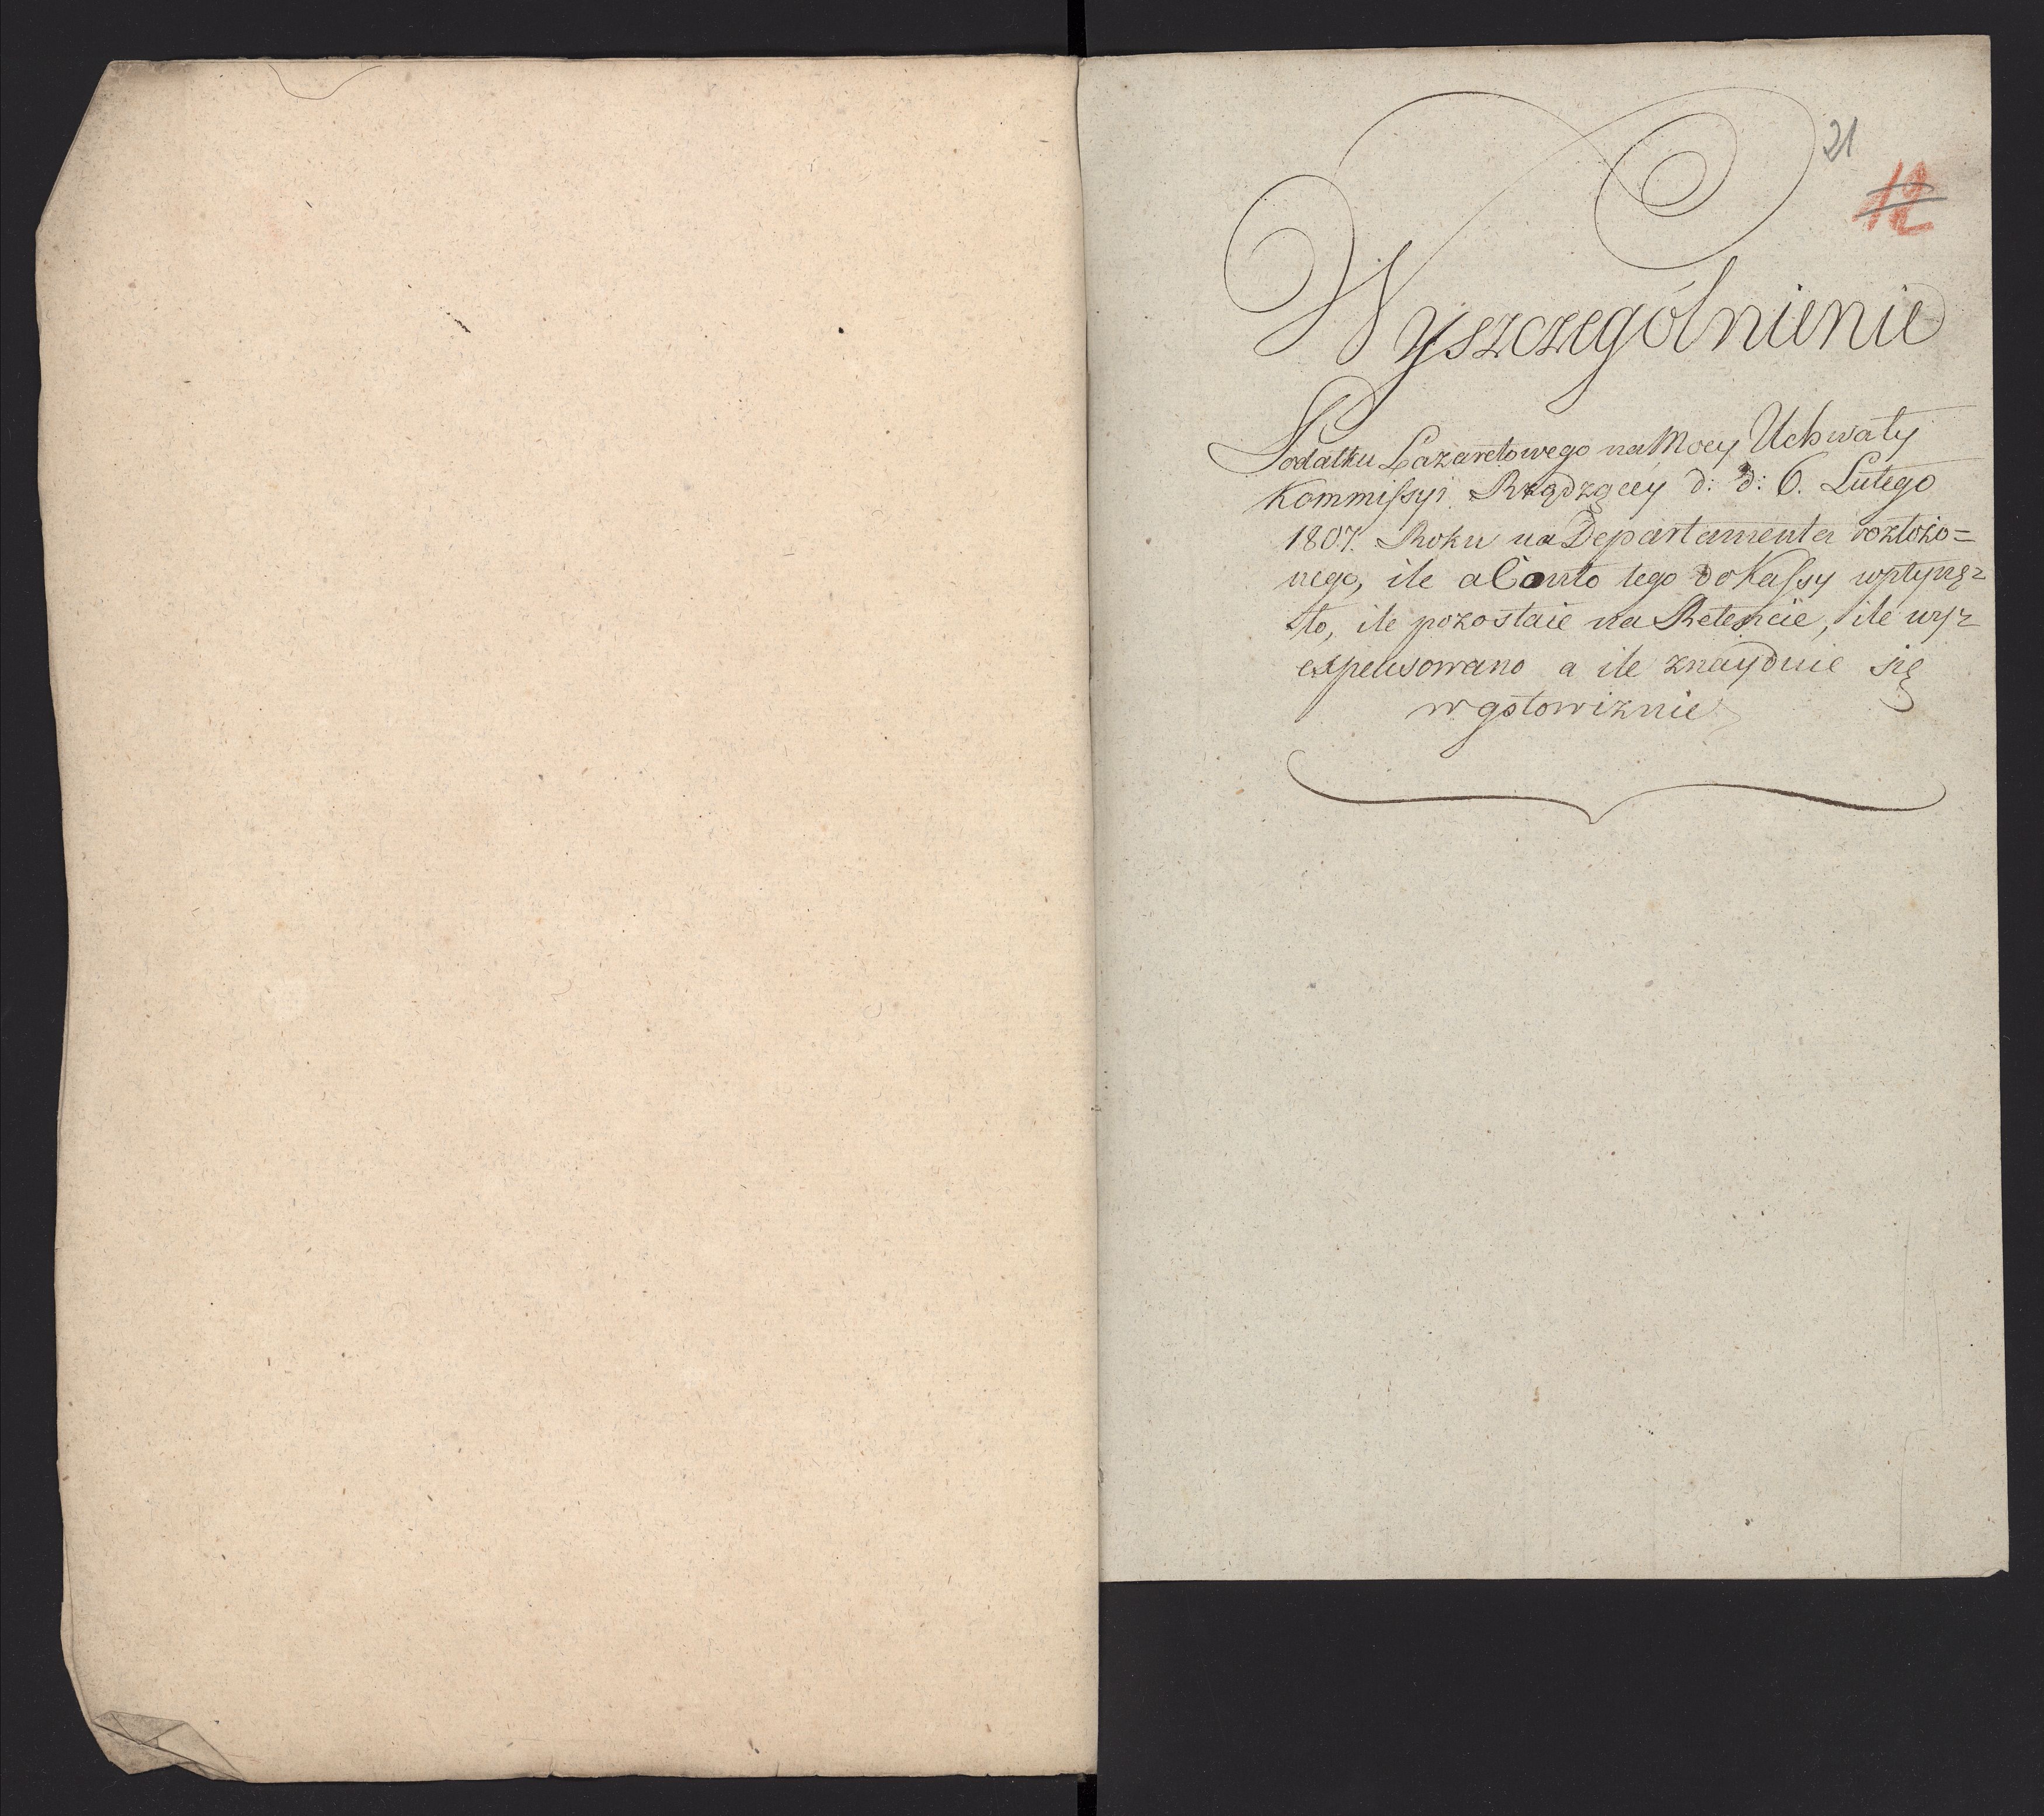 21
12
Wyszczegolnienie
Podatku Lazaretowego na Mocy Uchwały
Kommissyi Rządzącey d: d: 6. Lutego
1807. Roku na Departamenta rozłożo=
nego, ile a Conto tego do Kassy wpłynę=
ło, ile pozostaie na Retencie, ile wy=
expensowano a ile znayduie się
w gotowiznie